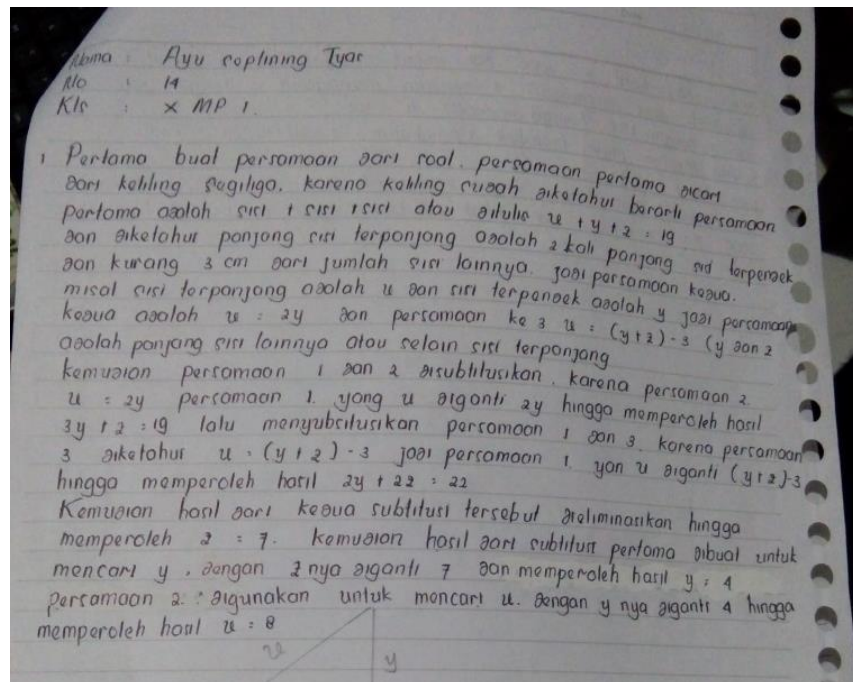 Nama : Ayu coptining Tyas
No : 14
Kls : X MP 1.
1 Pertama buat persamaan dari soal. persamaan pertama dicari
dari keliling segitiga. karena keliling sudah diketahui berarti persamaan
pertama adalah sisi + sisi + sisi atau ditulis x + y + z = 19
dan diketahui panjang sisi terpanjang adalah 2 kali panjang sisi terpendek
dan kurang 3 cm dari jumlah sisi lainnya. jadi persamaan kedua.
misal sisi terpanjang adalah x dan sisi terpendek adalah y jadi persamaan
kedua adalah x = 2y dan persamaan ke 3 x = (y+z) - 3 (y dan z
adalah panjang sisi lainnya atau selain sisi terpanjang
kemudian persamaan 1 dan 2 disubtitusikan. karena persamaan 2.
x = 2y persamaan 1. yang x diganti 2y hingga memperoleh hasil
3y + z = 19 lalu menyubsitusikan persamaan 1 dan 3. karena persamaan
3 diketahui x = (y+z) - 3 jadi persamaan 1. yan x diganti (y+z)-3
hingga memperoleh hasil 2y + 2z = 22
Kemudian hasil dari kedua subtitusi tersebut dieliminasikan hingga
memperoleh z = 7. kemudian hasil dari subtitusi pertama dibuat untuk
mencari y. dengan z nya diganti 7 dan memperoleh hasil y = 4
persamaan 2. digunakan untuk mencari x. dengan y nya diganti 4 hingga
memperoleh hasil x = 8
x y